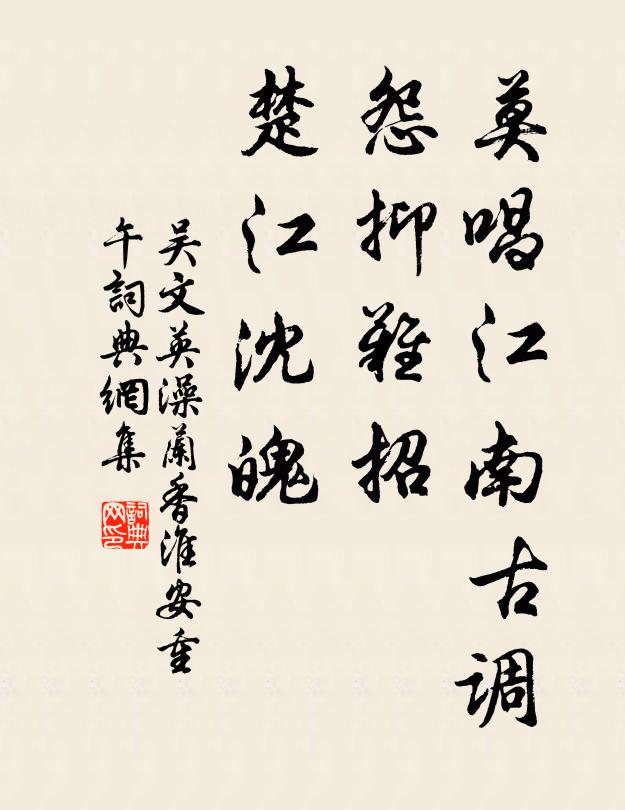 莫唱江南古调
怨抑难招
楚江沈魄
吴文英澡兰香淮安重
午詞典網集
詞典网印